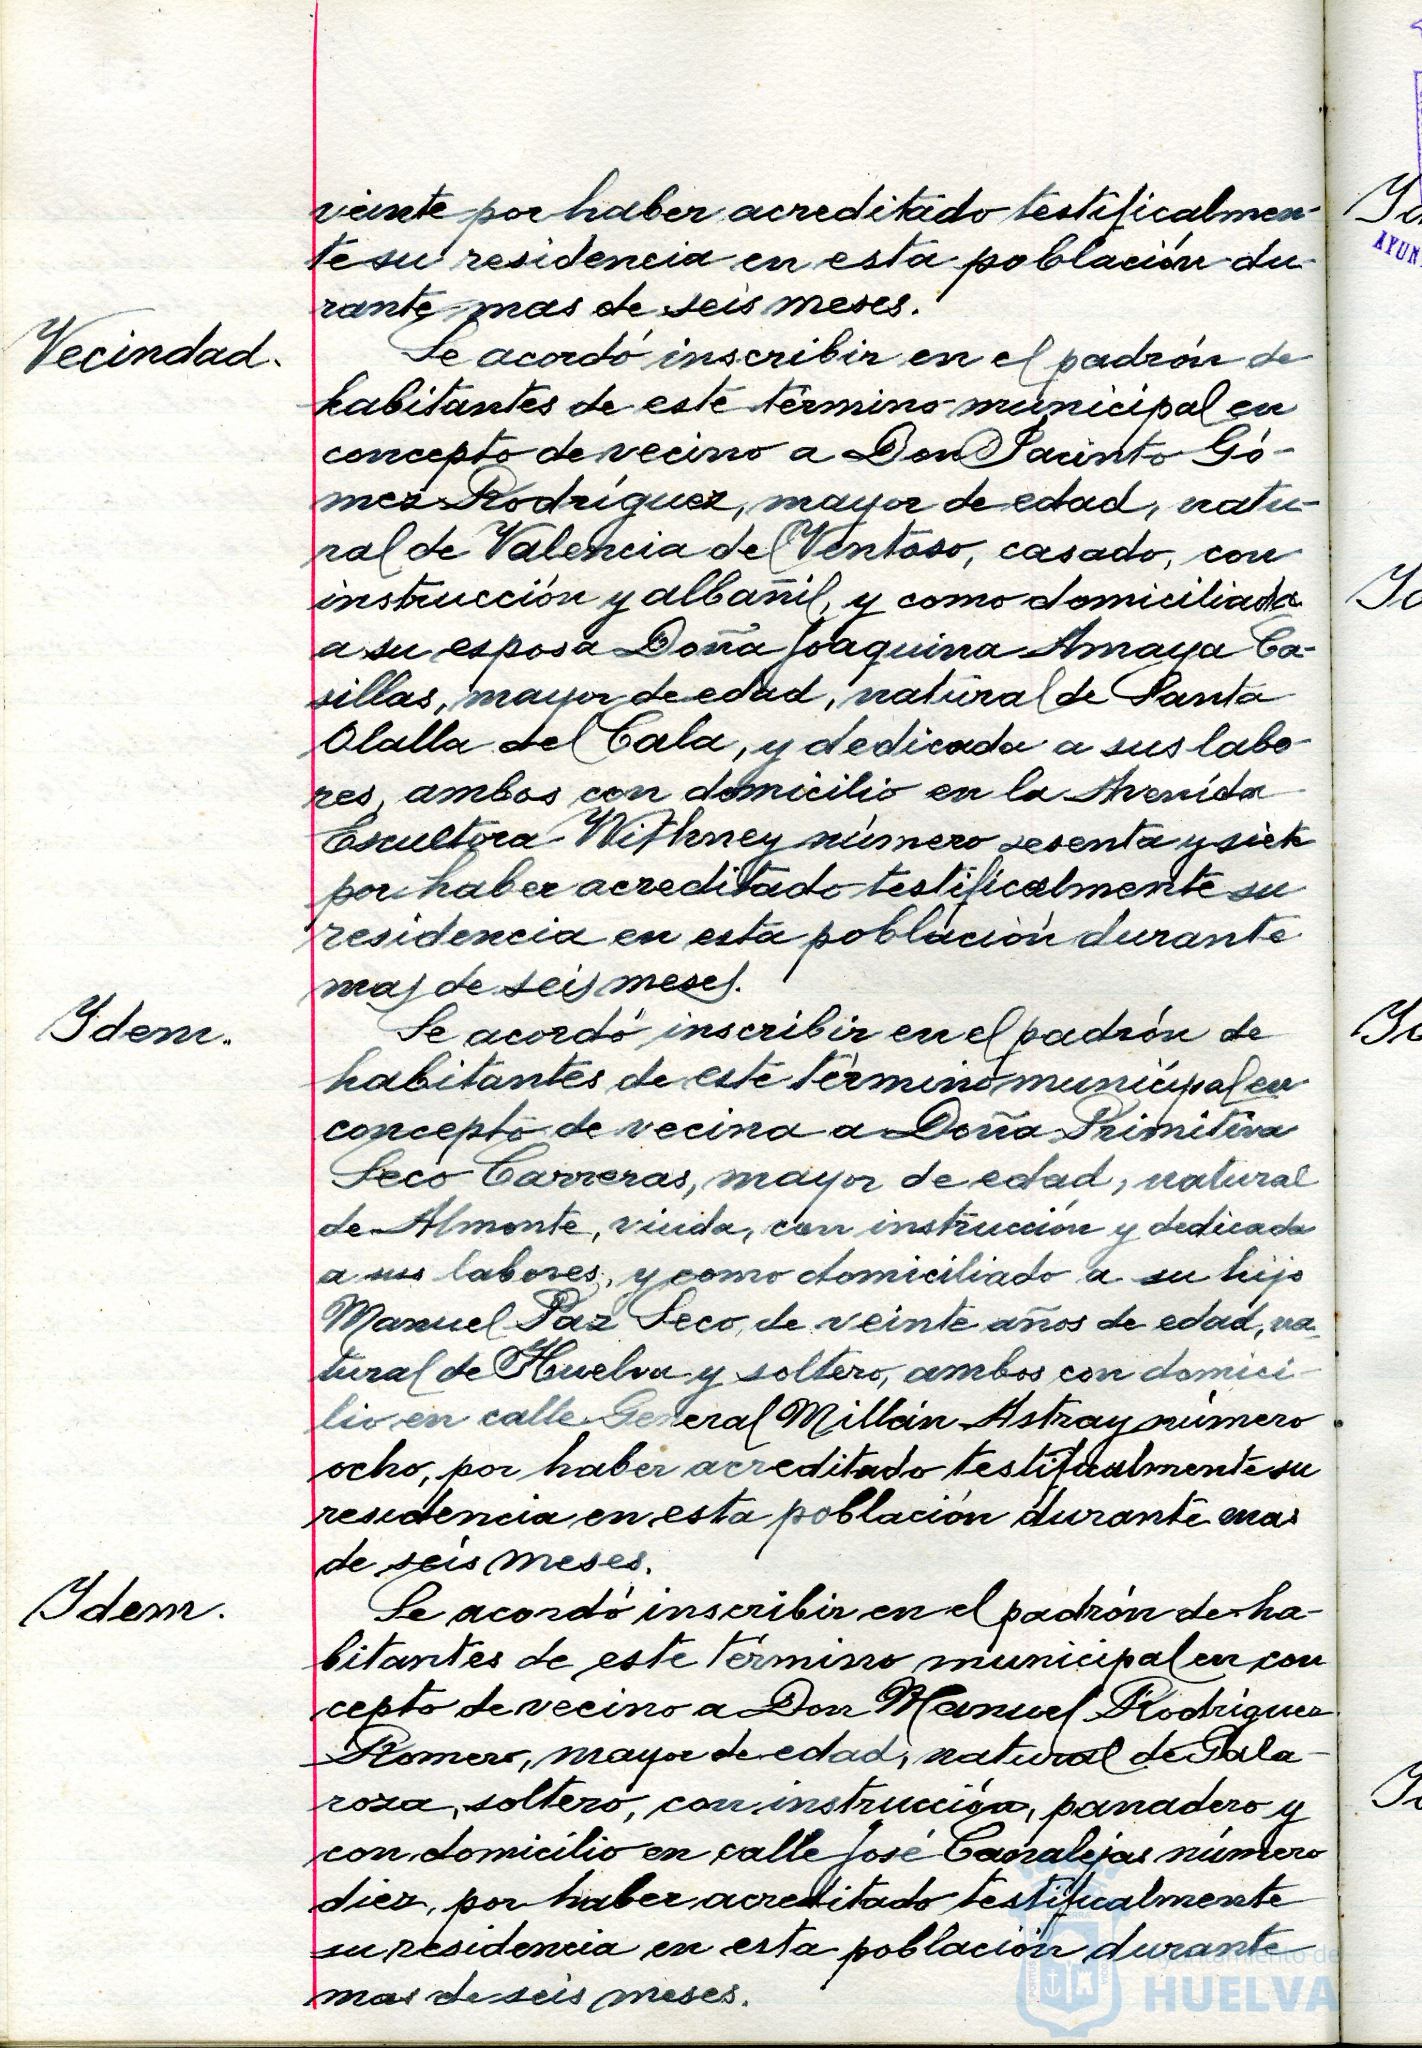 veinte por haber acreditado testificalmen-
te su residencia en esta población du-
rante mas de seis meses.
Vecindad.
Se acordó inscribir en el padrón de
habitantes de este término municipal en
concepto de vecino a Don Jacinto Gó-
mez Rodríguez, mayor de edad, natu-
ral de Valencia del Ventoso, casado, con
instrucción y albañil, y como domiciliada
a su esposa Doña Joaquina Amaya Ca-
sillas, mayor de edad, natural de Santa
Olalla del Cala, y dedicada a sus labo-
res, ambos con domicilio en la Avenida
Escultora Withney número sesenta y siete
por haber acreditado testificalmente su
residencia en esta población durante
mas de seis meses.
Idem.
Se acordó inscribir en el padrón de
habitantes de este término municipal en
concepto de vecina a Doña Primitiva
Seco Carreras, mayor de edad, natural
de Almonte, viuda, con instrucción y dedicada
a sus labores, y como domiciliado a su hijo
Manuel Paz Seco, de veinte años de edad, na-
tural de Huelva y soltero, ambos con domici-
lio en calle General Millán Astray número
ocho, por haber acreditado testificalmente su
residencia en esta población durante mas
de seis meses.
Idem.
Se acordó inscribir en el padrón de ha-
bitantes de este término municipal en con
cepto de vecino a Don Manuel Rodríguez
Romero, mayor de edad, natural de Gala-
roza, soltero, con instrucción, panadero y
con domicilio en calle José Canalejas número
diez, por haber acreditado testificalmente
su residencia en esta población durante
mas de seis meses.
Ayuntamiento de
HUELVA
AYUN